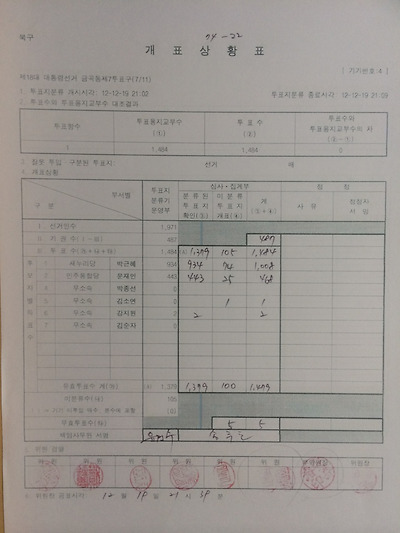 북구
04-22
개 표 상 황 표
[ 기기번호 4 ]
제18대 대통령선거 금곡동제7투표구(7/11)
1. 투표지분류 개시시각: 12-12-19 21:02 투표지분류 종료시각 12-12-19 21:09
2. 투표수의 투표용지교부수 대조결과
투표함수 투표용지교부수 (①) 투 표 수 (②) 투표수와 투표용지교부수의 차 (②-①)
1 1,484 1,484 0
구분된 투표지 선거 매
개표상황
구 분 부서별 투표지분류기운영부 심사·집계부 점 검
분류된 투표지 확인(③) 미분류 투표지 개표(④) 계 (③+④) 사 유 정정자 서 명
선거인수 1,971
기 권 수 487 487
투 표 수 1,484 1,379 105 1,484
1 새누리당 박근혜 934 934 74 1,008
2 민주통합당 문재인 443 443 25 468
3 무소속 박종선 0
4 무소속 김소연 0 1 1
5 무소속 강지원 2 2
7 무소속 김순자 0
유효투표수 계 1,379 1,379 100 1,479
미분류수
무효투표수 5 5
책임사무원 서명
위원 검열
위 원 위 원 위 원 위 원 위 원 위 원 위원장
위원장 공표시각 12 월 19 일 21 시 38 분